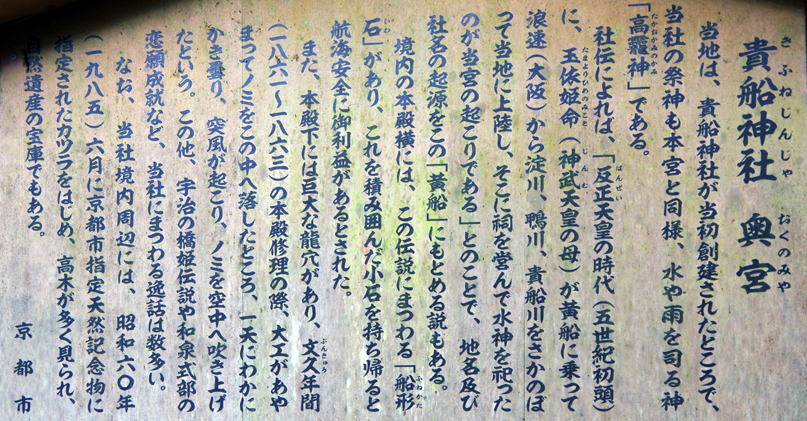 貴船神社　奥宮
きふねじんじゃ　おくのみや
当地は、貴船神社が当初創建されたところで、
当社の祭神も本宮と同様、水や雨を司る神
「高龗神」である。
たかおかみのかみ
社伝によれば、「反正天皇の時代（五世紀初頭）
はんぜい
に、玉依姫命（神武天皇の母）が黄船に乗って
たまよりひめのみこと　じんむ
浪速（大阪）から淀川、鴨川、貴船川をさかのぼ
って当地に上陸し、そこに祠を営んで水神を祀った
のが当宮の起こりである」とのことで、地名及び
社名の起源をこの「黄船」にもとめる説もある。
境内の本殿横には、この伝説にまつわる「船形
ふながた
石」があり、これを積み囲んだ小石を持ち帰ると
いわ
航海安全に御利益があるとされた。
また、本殿下には巨大な龍穴があり、文久年間
ぶんきゅう
（一八六一〜一八六三）の本殿修理の際、大工があや
まってノミをこの中へ落したところ、一天にわかに
かき曇り、突風が起こり、ノミを空中へ吹き上げ
たという。この他、宇治の橋姫伝説や和泉式部の
恋願成就など、当社にまつわる逸話は数多い。
なお、当社境内周辺には、昭和六〇年
（一九八五）六月に京都市指定天然記念物に
指定されたカツラをはじめ、高木が多く見られ、
自然遺産の宝庫でもある。
京都市